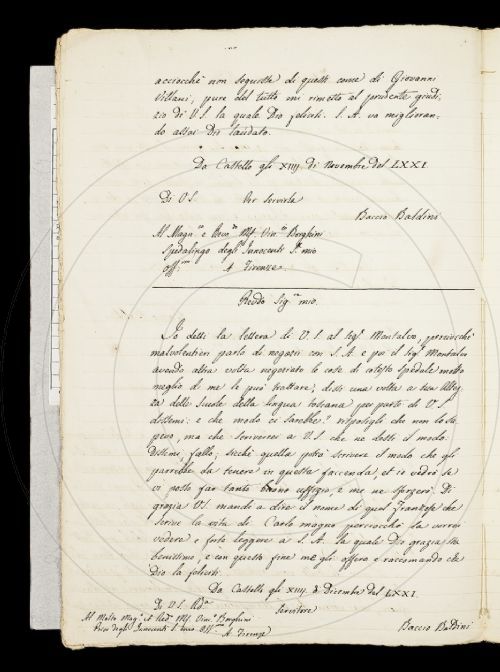 acciocchè non seguisse di questi come di Giovanni
Villani, pure del tutto mi rimetto al prudente giudi-
zio di V.S. la quale Dio feliciti. S. A. va miglioran-
do assai Dio laudato.
Da Castello gli XIIII di Novembre del LXXI.
Di V.S. Per servirla
Baccio Baldini
Al Magn.co e Rev.do Mſ. Vin.o Borghini
Spedalingo degli Innocenti S.r mio
Oss.mo A Firenze
Revdo Sig.re mio.
Io detti la lettera di V.S. al Sig.r Montalvo, perciocchè
malvolentieri parlo di negozi con S. A. e poi il Sig.r Montalvo
avendo altra volta negoziato le cose di cotesto Spedale molto
meglio di me le può trattare; dissi una volta a sua Altez
za delle Scuole della lingua toscana per parte di V.S.
dissemi: e che modo ci sarebbe? risposigli che non lo sa
pevo, ma che scriverrei a V.S. che ne dessi il modo.
Dissemi, fallo; sicchè quella potrà scrivere il modo che gli
parrebbe da tenere in questa faccenda, et io vedrò se
vi posso far tanto buono uffizio, e me ne sforzerò. Di
grazia V.S. mandi a dire il nome di quel Franzese che
scrive la vita di Carlo magno perciocchè la vorrei
vedere e forse leggere a S. A. la quale Dio grazia sta
benissimo, e con questo fine me gli offero e raccomando che
Dio la feliciti.
Da Castello gli XIIII di Dicembre del LXXI.
Di V.S. Rd.a Servitore
Al Molto Mag.co et Red.o Mſ. Vinc.o Borghini
Prior degli Innocenti S. suo Oss.mo Baccio Baldini
A Firenze